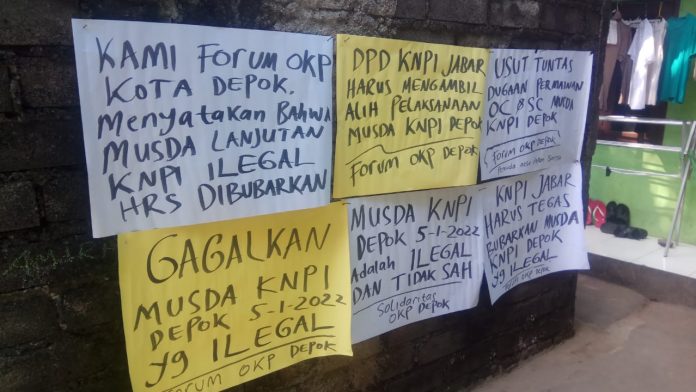 KAMI FORUM OKP
KOTA DEPOK.
Menyatakan BAHWA
MUSDA LANJUTAN
KNPI ILEGAL
HRS DIBUBARKAN
DPD KNPI JABAR
HARUS MENGAMBIL
ALIH PELAKSANAAN
MUSDA KNPI DEPOK
FORUM OKP DEPOK
USUT TUNTAS
DUGAAN PERMAINAN
OC & SC MUSDA
KNPI DEPOK
FORUM OKP DEPOK
GAGALKAN
MUSDA KNPI
DEPOK 5-1-2022
yg ILEGAL
FORUM OKP DEPOK
MUSDA KNPI
DEPOK 5-1-2022
Adalah ILEGAL
DAN TIDAK SAH
Solidaritas
OKP DEPOK
KNPI JABAR
HARUS TEGAS
BUBARKAN MUSDA
KNPI DEPOK
yg ILEGAL
FORUM OKP DEPOK